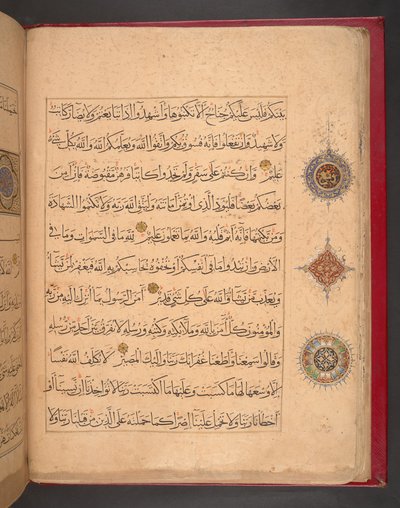 بينكم فليس عليكم جناح ألا تكتبوها وأشهدوا إذا تبايعتم ولا يضار كاتب
ولا شهيد وإن تفعلوا فإنه فسوق بكم واتقوا الله ويعلمكم الله والله بكل شيء
عليم وإن كنتم على سفر ولم تجدوا كاتبا فرهن مقبوضة فإن أمن
بعضكم بعضا فليؤد الذي اؤتمن أمانته وليتق الله ربه ولا تكتموا الشهادة
ومن يكتمها فإنه آثم قلبه والله بما تعملون عليم لله ما في السموات وما في
الأرض وإن تبدوا ما في أنفسكم أو تخفوه يحاسبكم به الله فيغفر لمن يشاء
ويعذب من يشاء والله على كل شيء قدير آمن الرسول بما أنزل إليه من ربه
والمؤمنون كل آمن بالله وملائكته وكتبه ورسله لا نفرق بين أحد من رسله
وقالوا سمعنا وأطعنا غفرانك ربنا وإليك المصير لا يكلف الله نفسا
إلا وسعها لها ما كسبت وعليها ما اكتسبت ربنا لا تؤاخذنا إن نسينا أو
أخطأنا ربنا ولا تحمل علينا إصرا كما حملته على الذين من قبلنا ربنا ولا